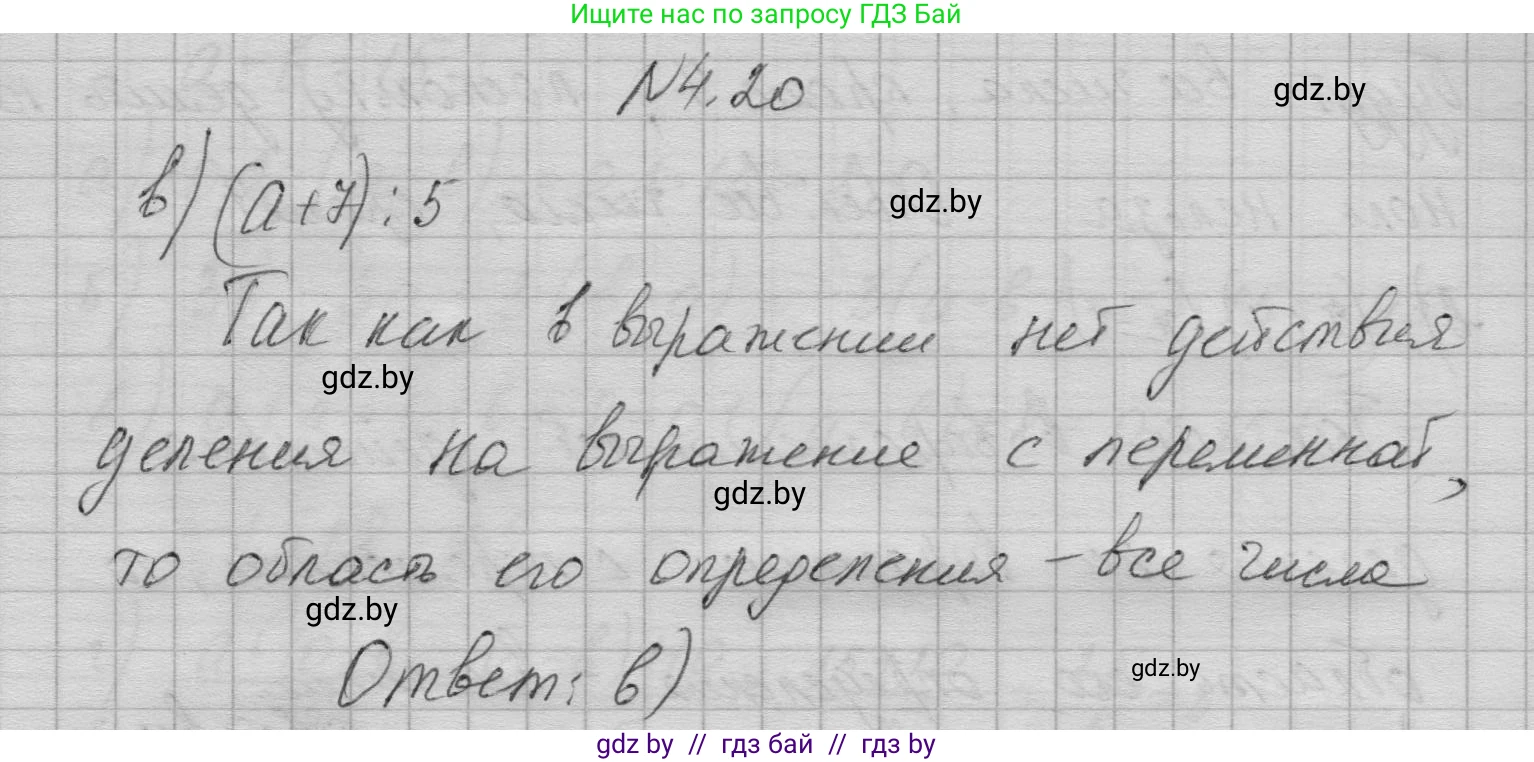 Ищите нас по запросу ГДЗ Бай
N4.20
gdz.by
в) (a+7) : 5
gdz.by
Так как в выражении нет действия
gdz.by
деления на выражение с переменной,
gdz.by
то область его определения – все числа
gdz.by
Ответ: в)
gdz.by
gdz by // гдз бай // гдз by